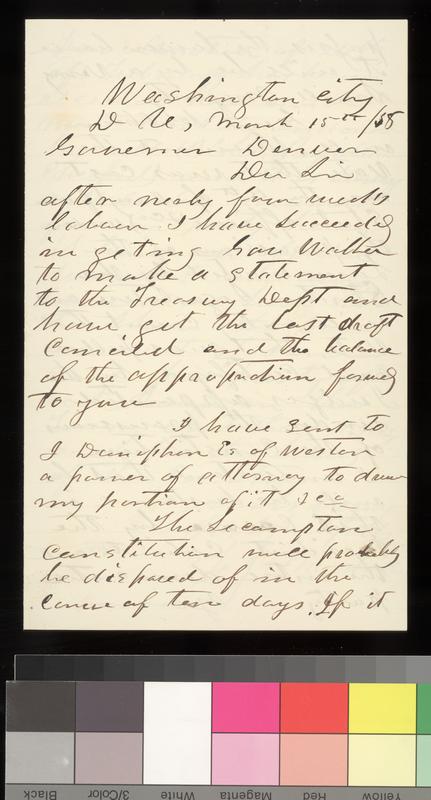 Washington City
D C, March 15th /58
Governor Denver
Dr Sir
after nearly four weeks
labour I have succeeded
in geting Gov Walker
to make a statement
to the Treasury Dept and
have got the last draft
canciled and the balance
of the appropriation forwed
to you
I have sent to
J Doniphan Es of Weston
a power of attorney to draw
my portion of it &c
The Lecompton
Constitution will probably
be disposed of in the
course of ten days. If it
Black
3/Color
White
Magenta
Red
Yellow